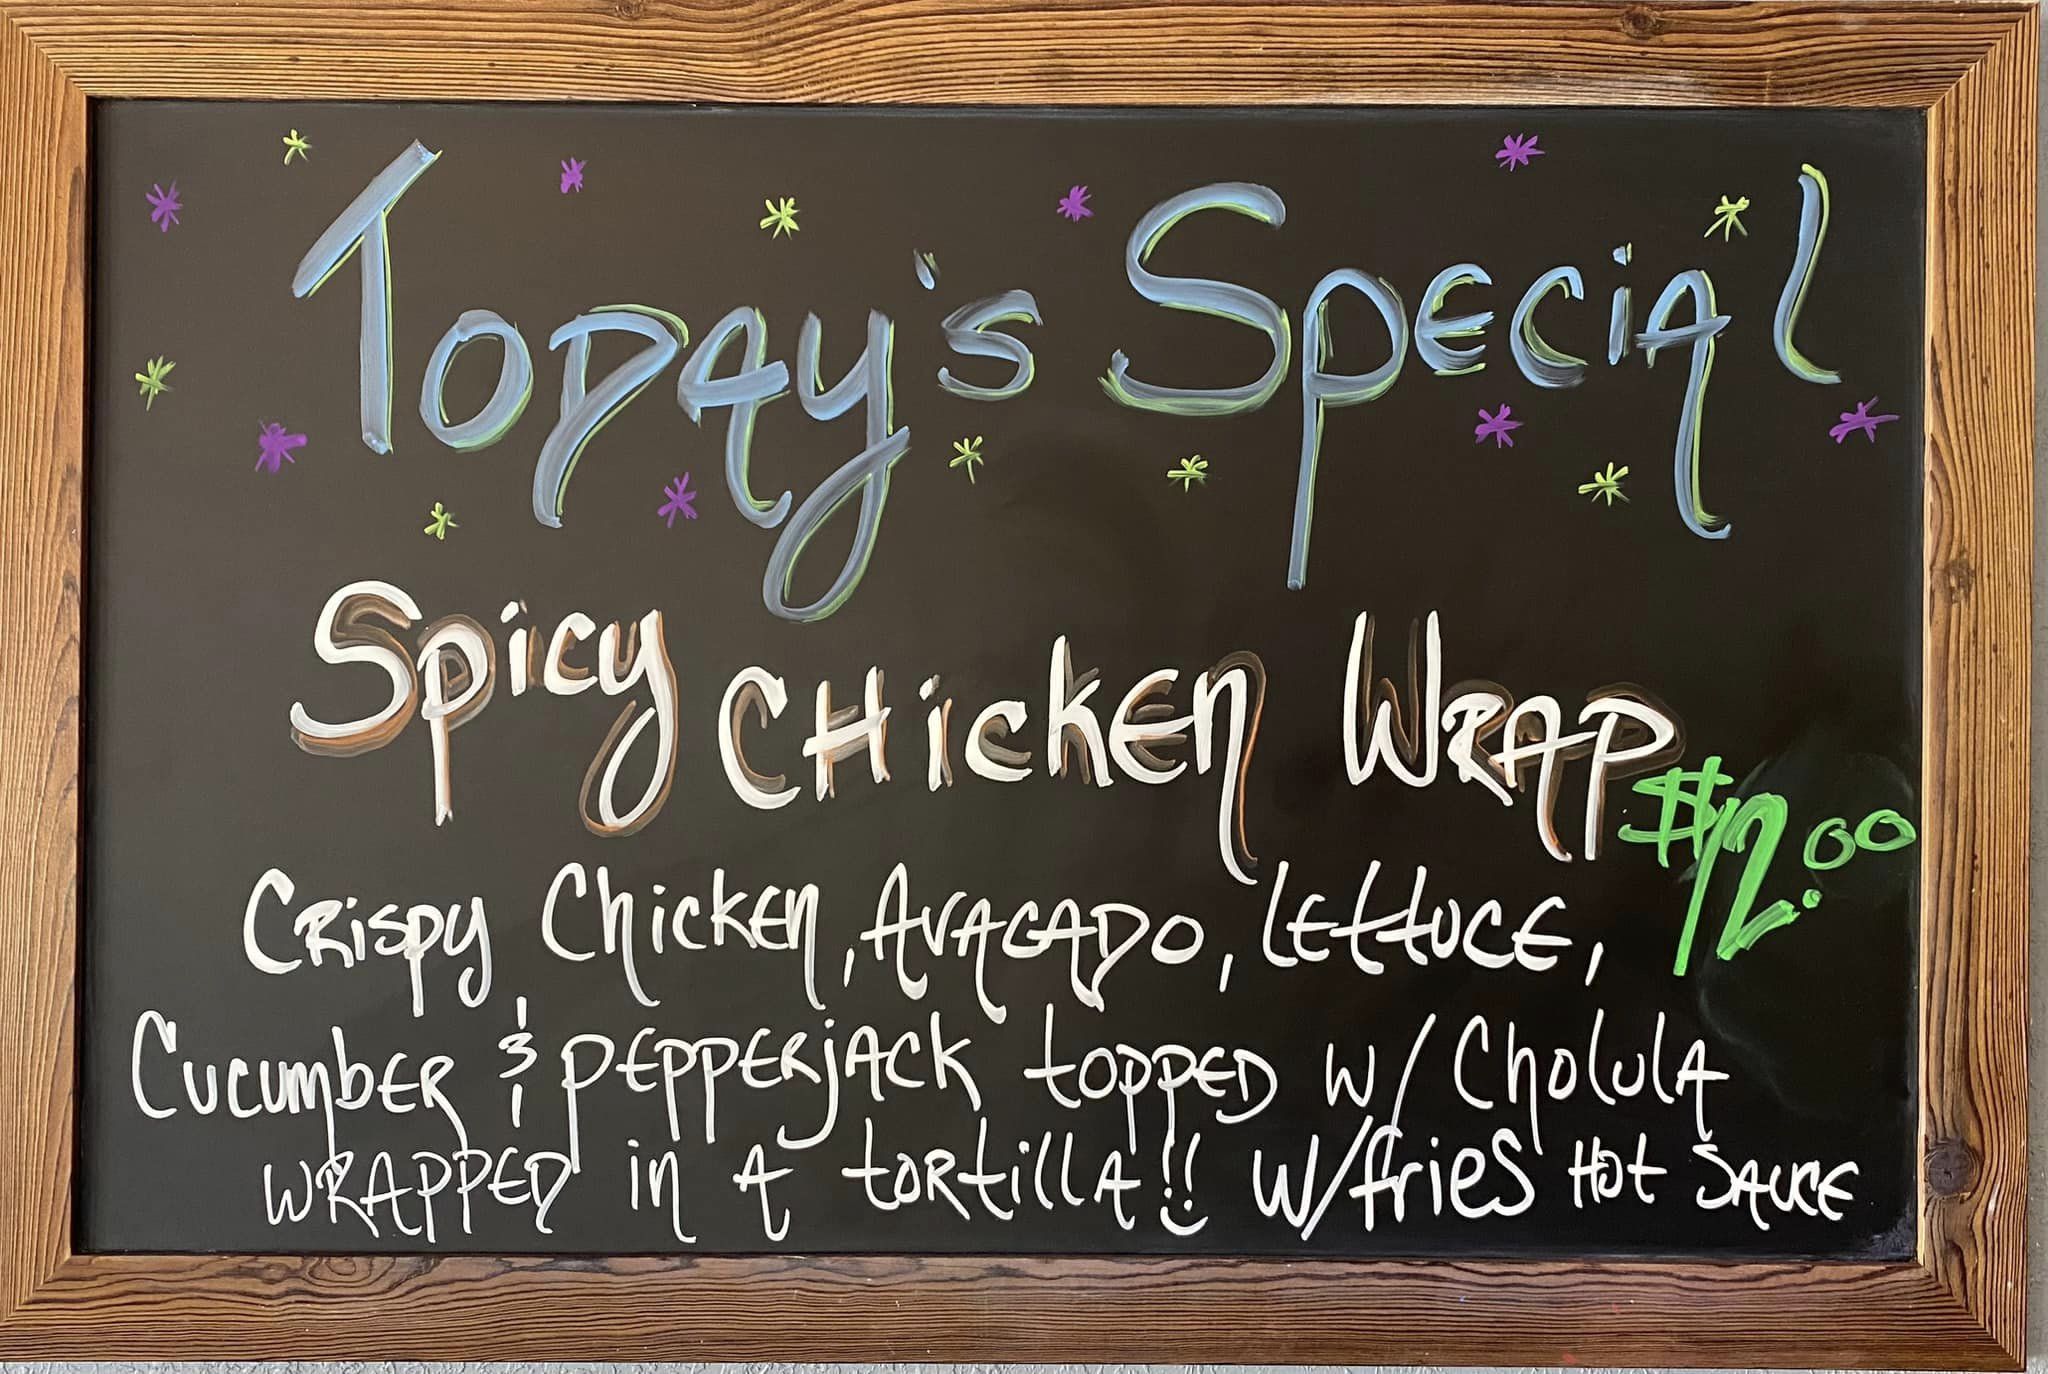 Today's Special
Spicy Chicken Wrap
$12.00
Crispy Chicken, Avacado, Lettuce,
Cucumber & pepperjack topped w/ Cholula
wrapped in a tortilla!! w/fries Hot Sauce